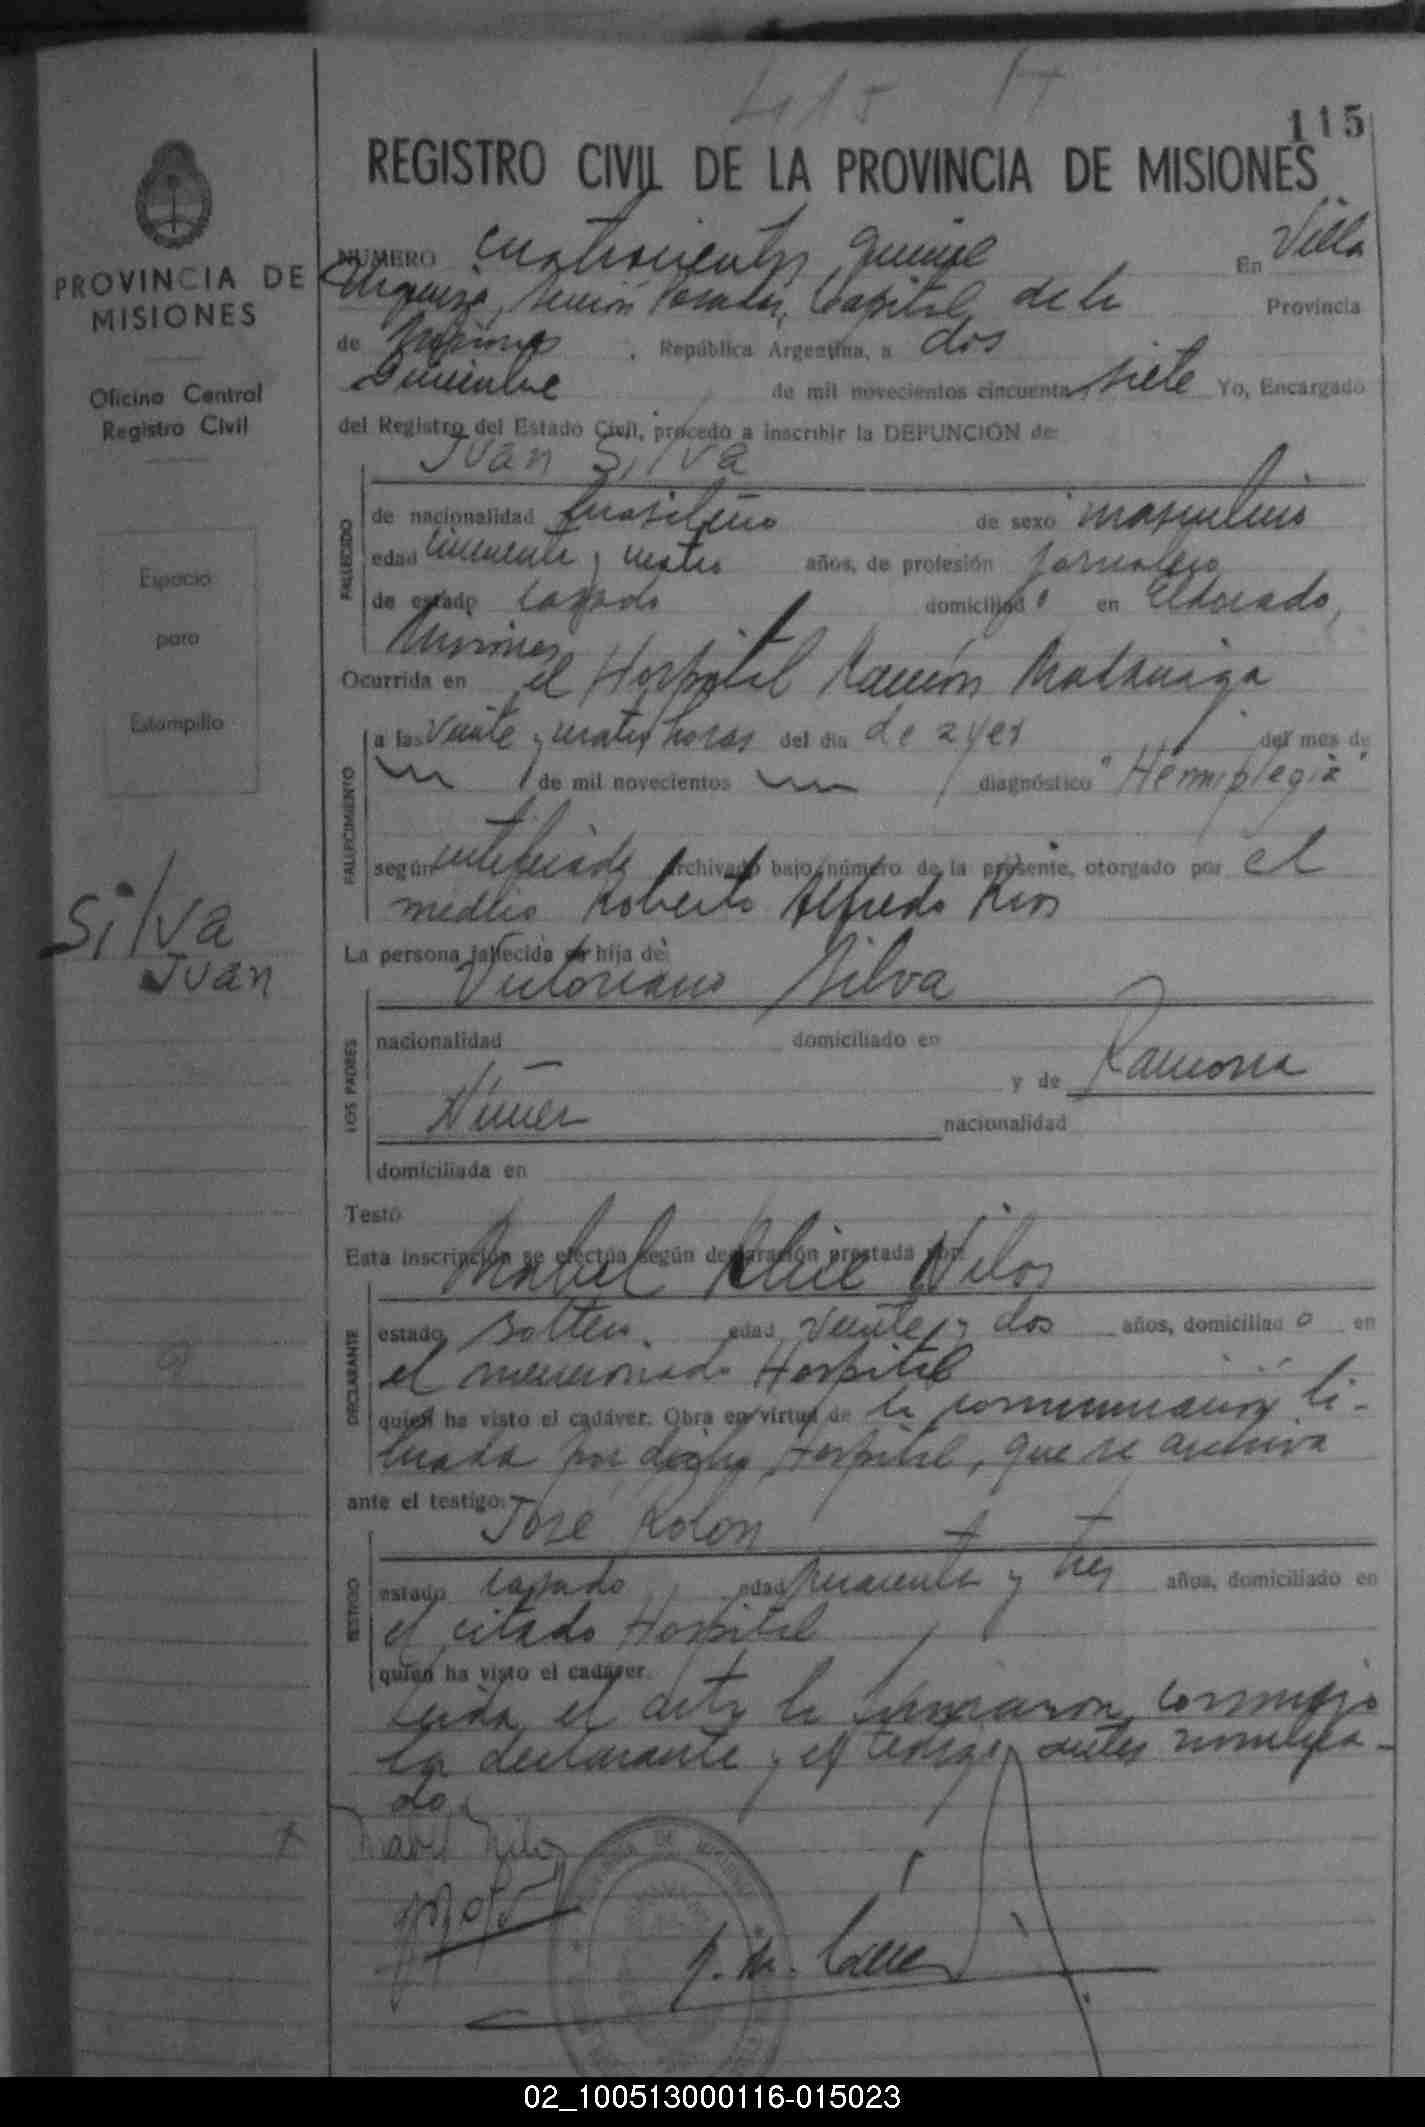 415
115
REGISTRO CIVIL DE LA PROVINCIA DE MISIONES
PROVINCIA DE
MISIONES
Oficina Central
Registro Civil
Espacio
para
Estampilla
Silva
Juan
NUMERO cuatrocientos quince En Villa
Urquiza, Sección Posadas, Capital de la Provincia
de Misiones, República Argentina, a dos
Diciembre de mil novecientos cincuenta siete Yo, Encargado
del Registro del Estado Civil, procedo a inscribir la DEFUNCION de:
Juan Silva
FALLECIDO
de nacionalidad brasileño de sexo masculino
edad cincuenta y cuatro años, de profesión jornalero
de estado casado domiciliado en Eldorado,
Misiones
Ocurrida en el Hospital Ramón Madariaga
FALLECIMIENTO
a las veinte y cuatro horas del día de ayer del mes de
de mil novecientos diagnóstico "Hemiplegia"
según certificado archivado bajo número de la presente, otorgado por el
médico Roberto Alfredo Rios
La persona fallecida es hija de:
Victoriano Silva
LOS PADRES
nacionalidad domiciliado en
y de Ramona
Núnez nacionalidad
domiciliada en
Testó
Esta inscripción se efectúa según declaración prestada por:
Mabel Nilos
DECLARANTE
estado soltera edad veinte y dos años, domiciliado en
el mencionado Hospital
quien ha visto el cadáver. Obra en virtud de la comunicación li-
brada por dicho Hospital, que se archiva
ante el testigo:
José Rolon
TESTIGO
estado casado edad cuarenta y tres años, domiciliado en
el citado Hospital
quien ha visto el cadáver.
Leida el acta la firmaron conmigo
la declarante y el testigo antes nombra-
do.
Mabel Nilos
02_100513000116-015023